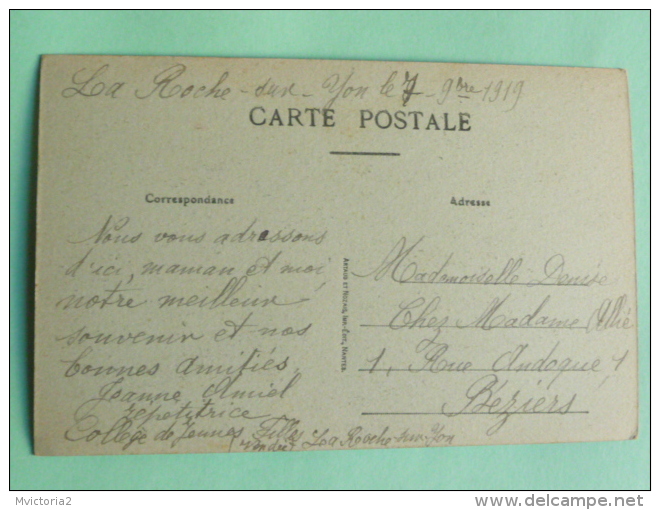 La Roche-sur-Yon le 7 - 9bre 1919
CARTE POSTALE
Correspondance
Adresse
Nous vous adressons
d'ici, maman et moi,
notre meilleur
souvenir et nos
bonnes amitiés.
Jeanne Amiel
répétitrice
Collège de Jeunes Filles La Roche-sur-Yon
(Vendée)
Mademoiselle Denise
Chez Madame
1, Rue Andoque, 1
Béziers
Mvictoria2
delcampe.net